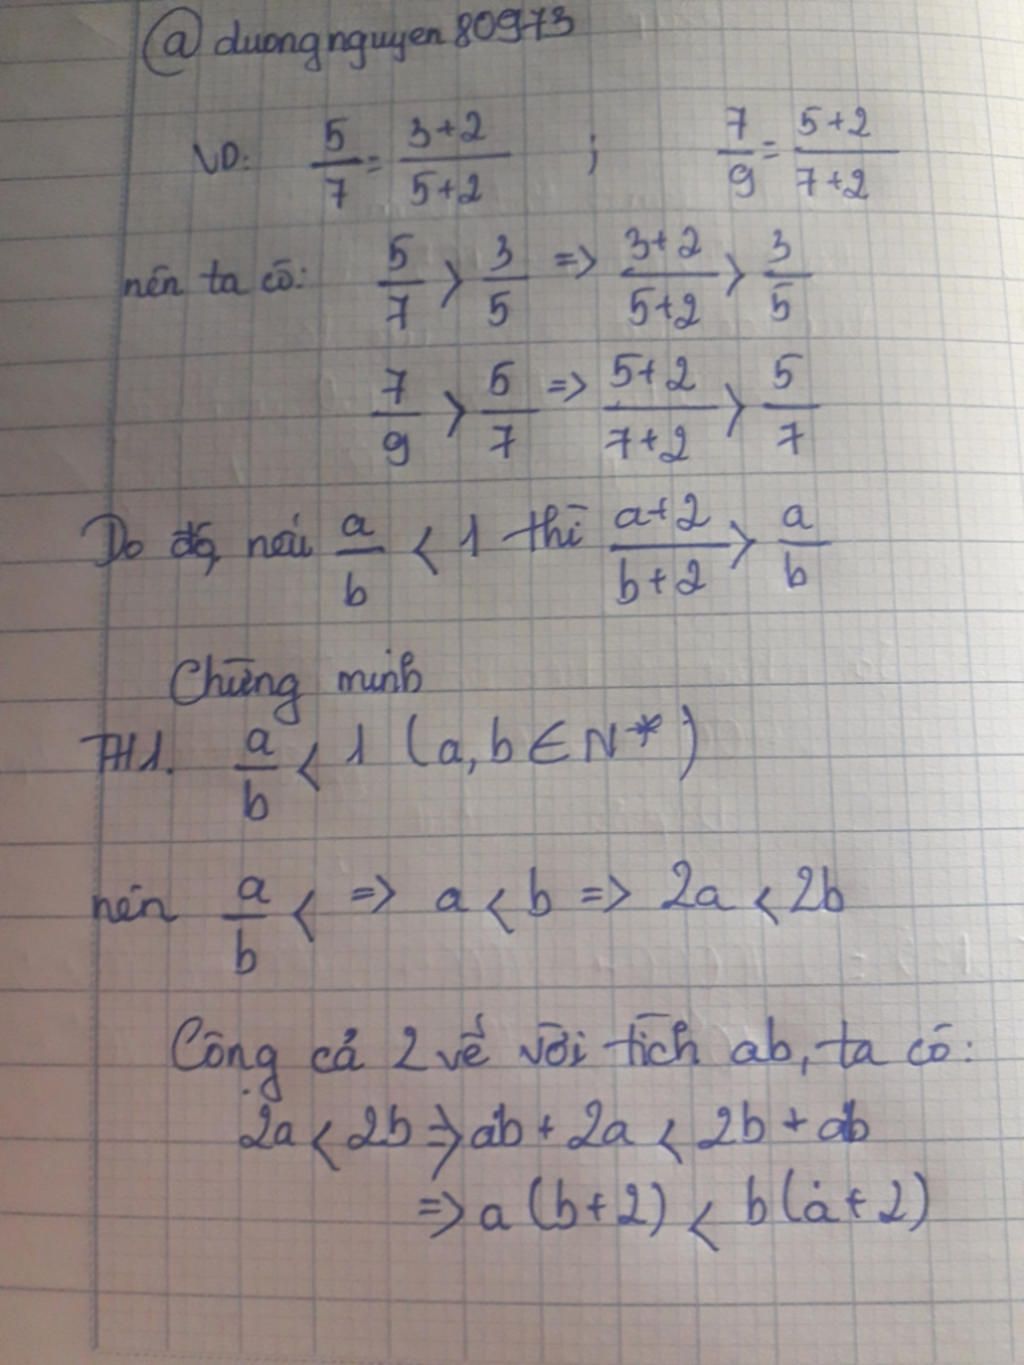 @duongnguyen80973
VD: 5/7 = 3+2/5+2 ; 7/9 = 5+2/7+2
nên ta có: 5/7 > 3/5 => 3+2/5+2 > 3/5
7/9 > 5/7 => 5+2/7+2 > 5/7
Do đó, nếu a/b < 1 thì a+2/b+2 > a/b
Chứng minh
TH1. a/b < 1 (a, b ∈ N*)
nên a/b < => a < b => 2a < 2b
Cộng cả 2 vế với tích ab, ta có:
2a < 2b => ab + 2a < 2b + ab
=> a(b+2) < b(a+2)